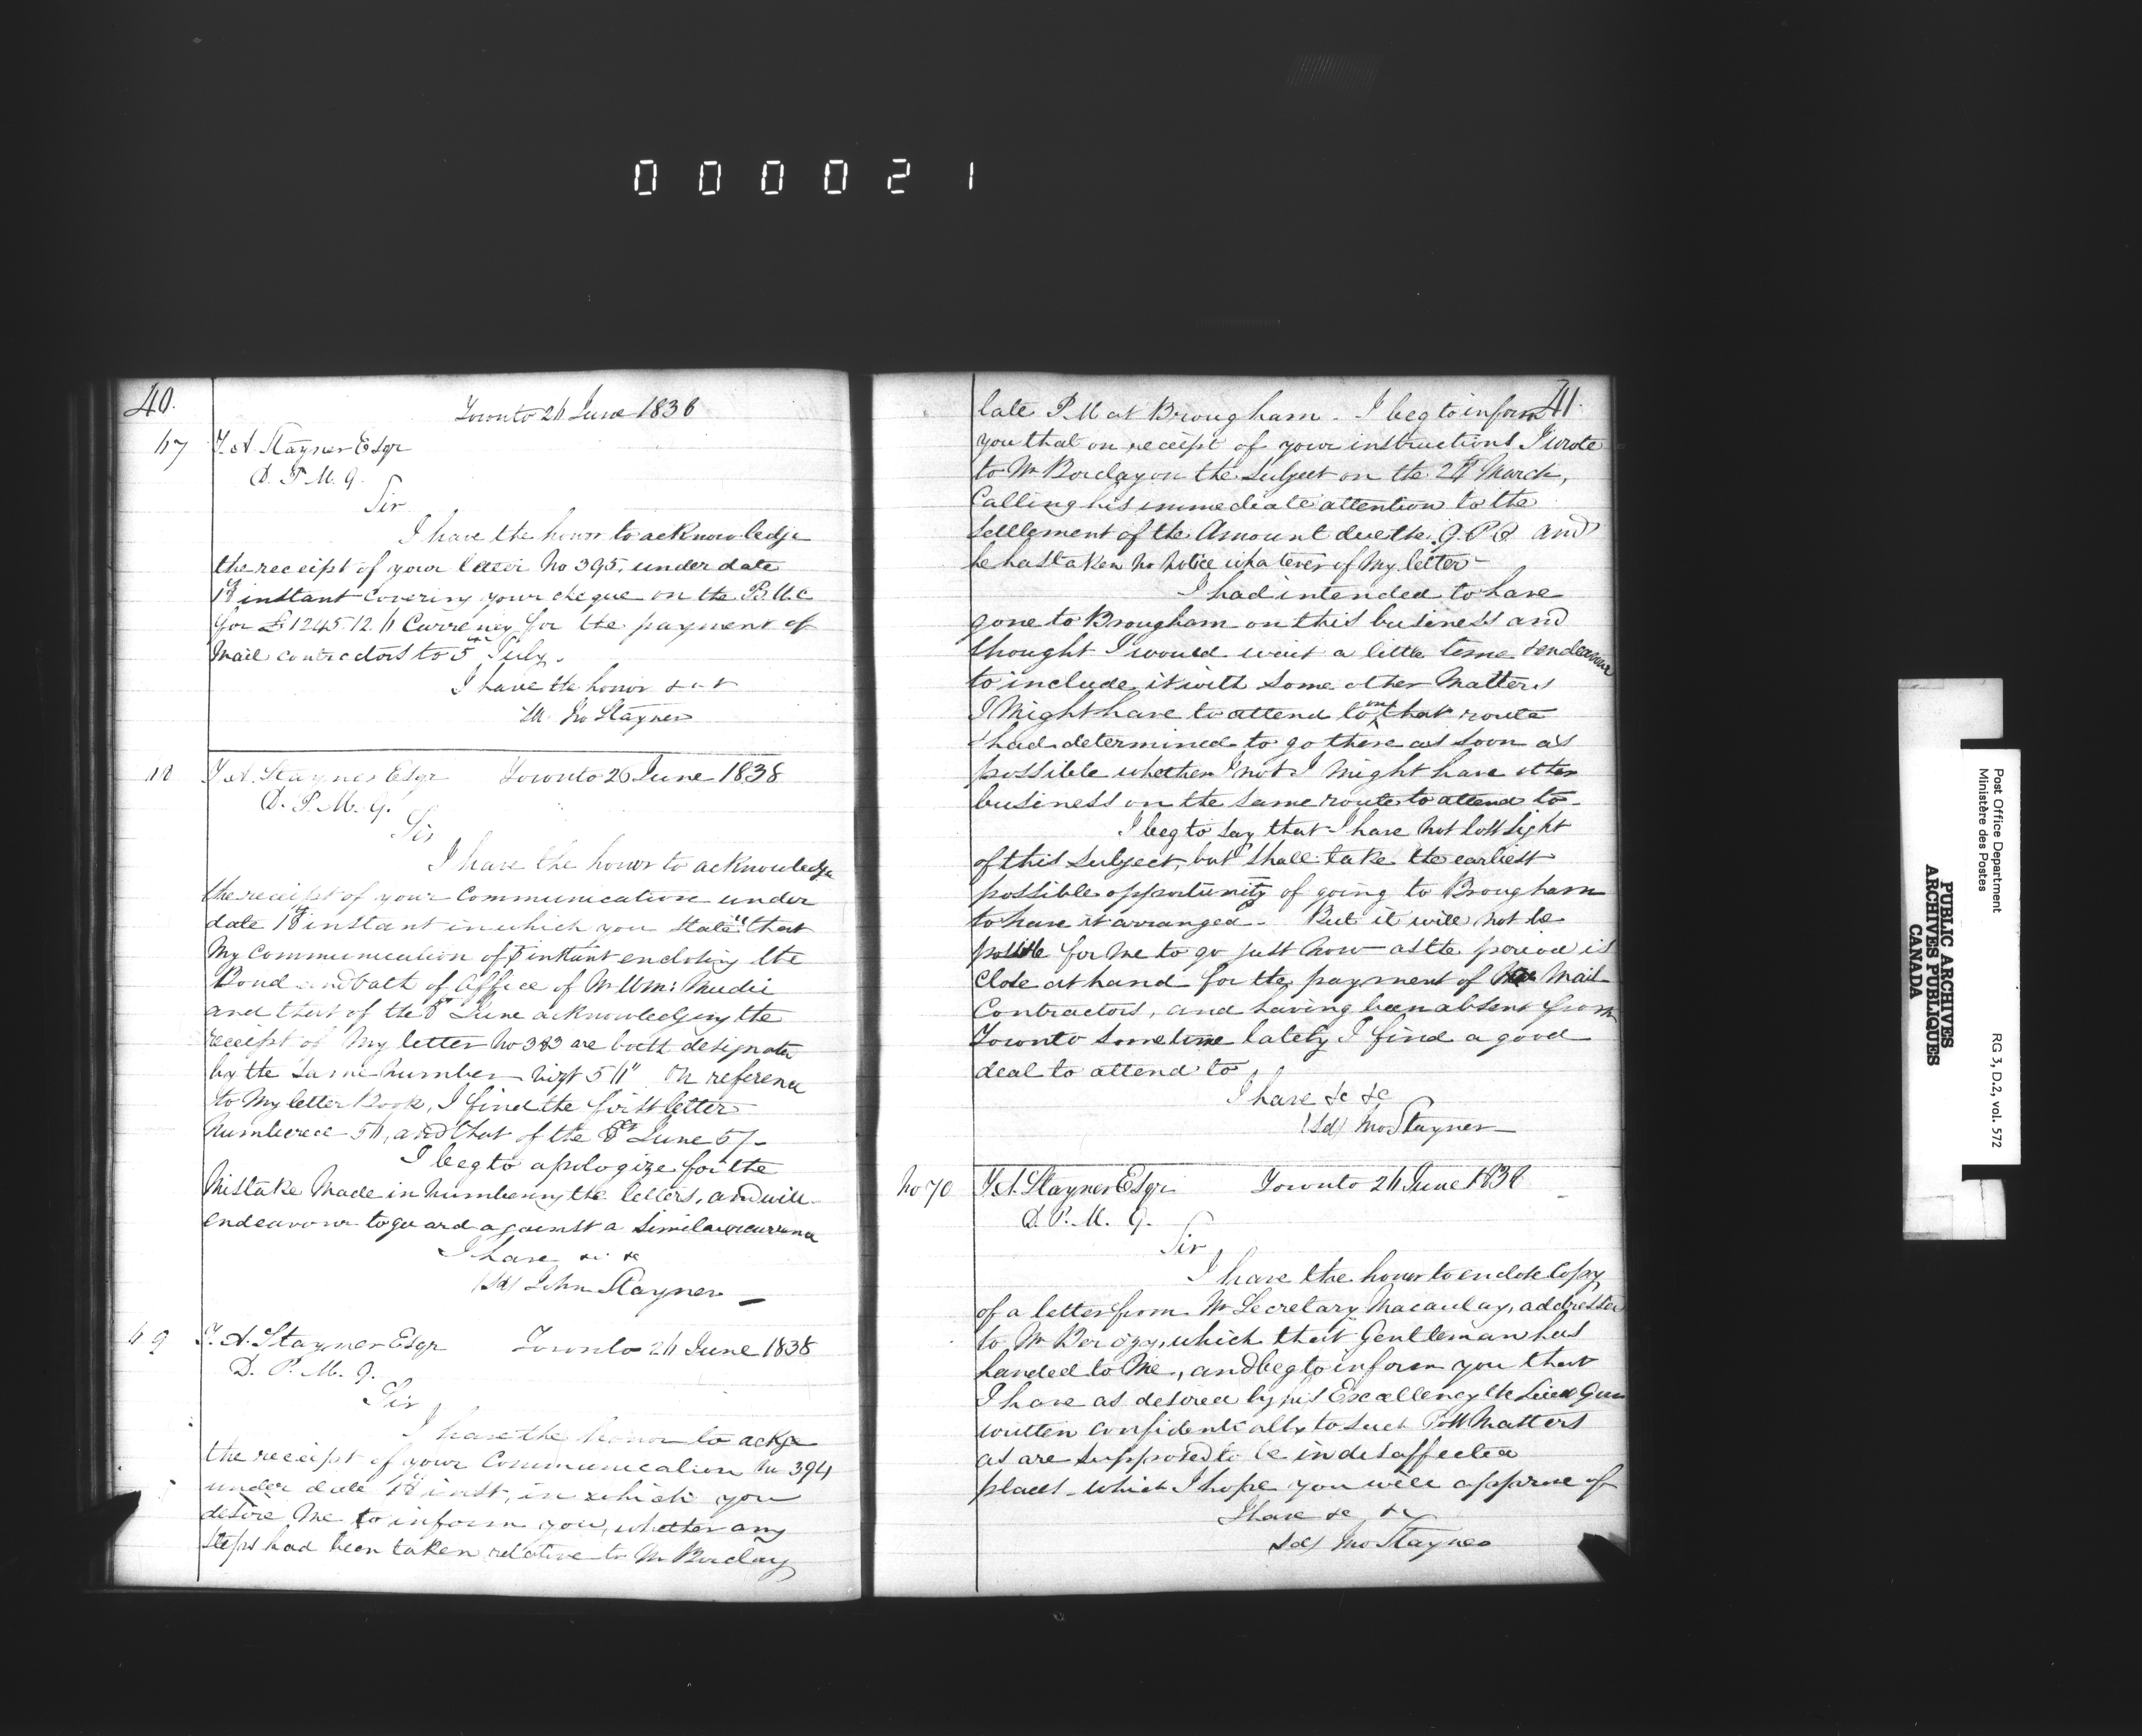 000021
40.
Toronto 26 June 1838
67 T. A. Stayner Esqr
D. P. M. G.
Sir
I have the honor to acknowledge
the receipt of your letter No 395, under date
18th instant covering your cheque on the B. U. C
for £1245.12.6 Currency for the payment of
Mail contractors to 5th July.
I have the honor &c &
Jno Stayner
68 T. A. Stayner Esqr Toronto 26 June 1838
D. P. M. G.
Sir
I have the honor to acknowledge
the receipt of your Communication under
date 18th instant in which you state "that
My Communication of instant enclosing the
Bond and Oath of Office of Mr Wm: Mudie
and that of the 8th June acknowledging the
receipt of My letter No 383 are both designated
by the Same Number vizt 56" On reference
to My letter Book, I find the first letter
Numbered 56, and that of the 8th June 57-
I beg to apologize for the
Mistake Made in Numbering the letters, and will
endeavour to guard against a Similar occurrence
I have &c &c
(Sd) John Stayner
69 T. A. Stayner Esqr Toronto 26 June 1838
D. P. M. G.
Sir
I have the honor to ackge
the receipt of your Communication No 394
under date 18th inst, in which you
desire Me to inform you, whether any
Steps had been taken relative to Mr Barclay
41.
late P. M at Brougham. I beg to inform
you that on receipt of your instructions I wrote
to Mr Barclay on the Subject on the March,
Calling his immediate attention to the
Settlement of the Amount due the G. P. O and
he has taken no Notice whatever of My letter-
I had intended to have
gone to Brougham on this business and
thought I would wait a little time & endeavour
to include it with Some other Matters
I Might have to attend to on that route
& had determined to go there as soon as
possible whether or not I Might have other
business on the Same route to attend to-
I beg to Say that I have Not lost Sight
of this Subject, but Shall take the earliest
possible opportunity of going to Brougham
to have it arranged. But it will Not be
possible for Me to go just Now as the period is
Close at hand for the payment of the Mail
Contractors, and having been absent from
Toronto Sometime lately I find a good
deal to attend to
I have &c &c
(Sd) Jno Stayner
No 70 T. A. Stayner Esqr Toronto 26 June 1838
D. P. M. G.
Sir,
I have the honor to enclose Copy
of a letter from Mr Secretary Macaulay, addressed
to Mr Berczy, which that Gentleman has
handed to Me, and beg to inform you that
I have as desired by his Excellency the Lieut Gov
written Confidentially to Such Post Masters
as are Supposed to be in disaffected
places which I hope you will approve of
I have &c &c
(Sd) Jno Stayner
Post Office Department
Ministère des Postes
RG 3, D.2, vol. 572
PUBLIC ARCHIVES
ARCHIVES PUBLIQUES
CANADA